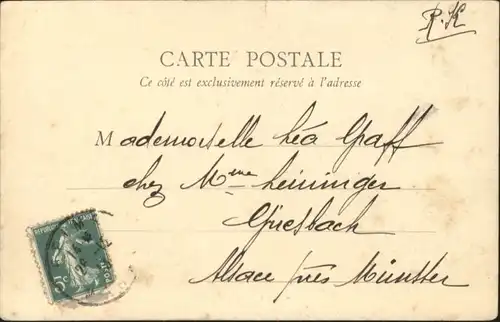 R. K
CARTE POSTALE
Ce côté est exclusivement réservé à l'adresse
Mademoiselle Léa Graff
chez Mme Heininger
Griesbach
Alsace près Münster
5c